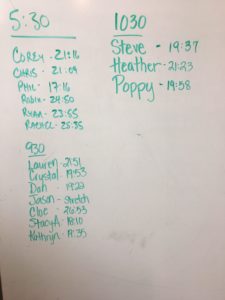 5:30
COREY - 21:16
CHRIS - 21:09
PHIL - 17:16
ROBIN - 24:50
RYAN - 23:55
RACHEL - 25:35
930
Lauren - 21:51
Crystal - 19:53
Dan - 19:22
Jason - stretch
Cloe - 26:53
StacyA - 18:10
Kathryn - 19:35
1030
Steve - 19:37
Heather - 21:23
Poppy - 19:58